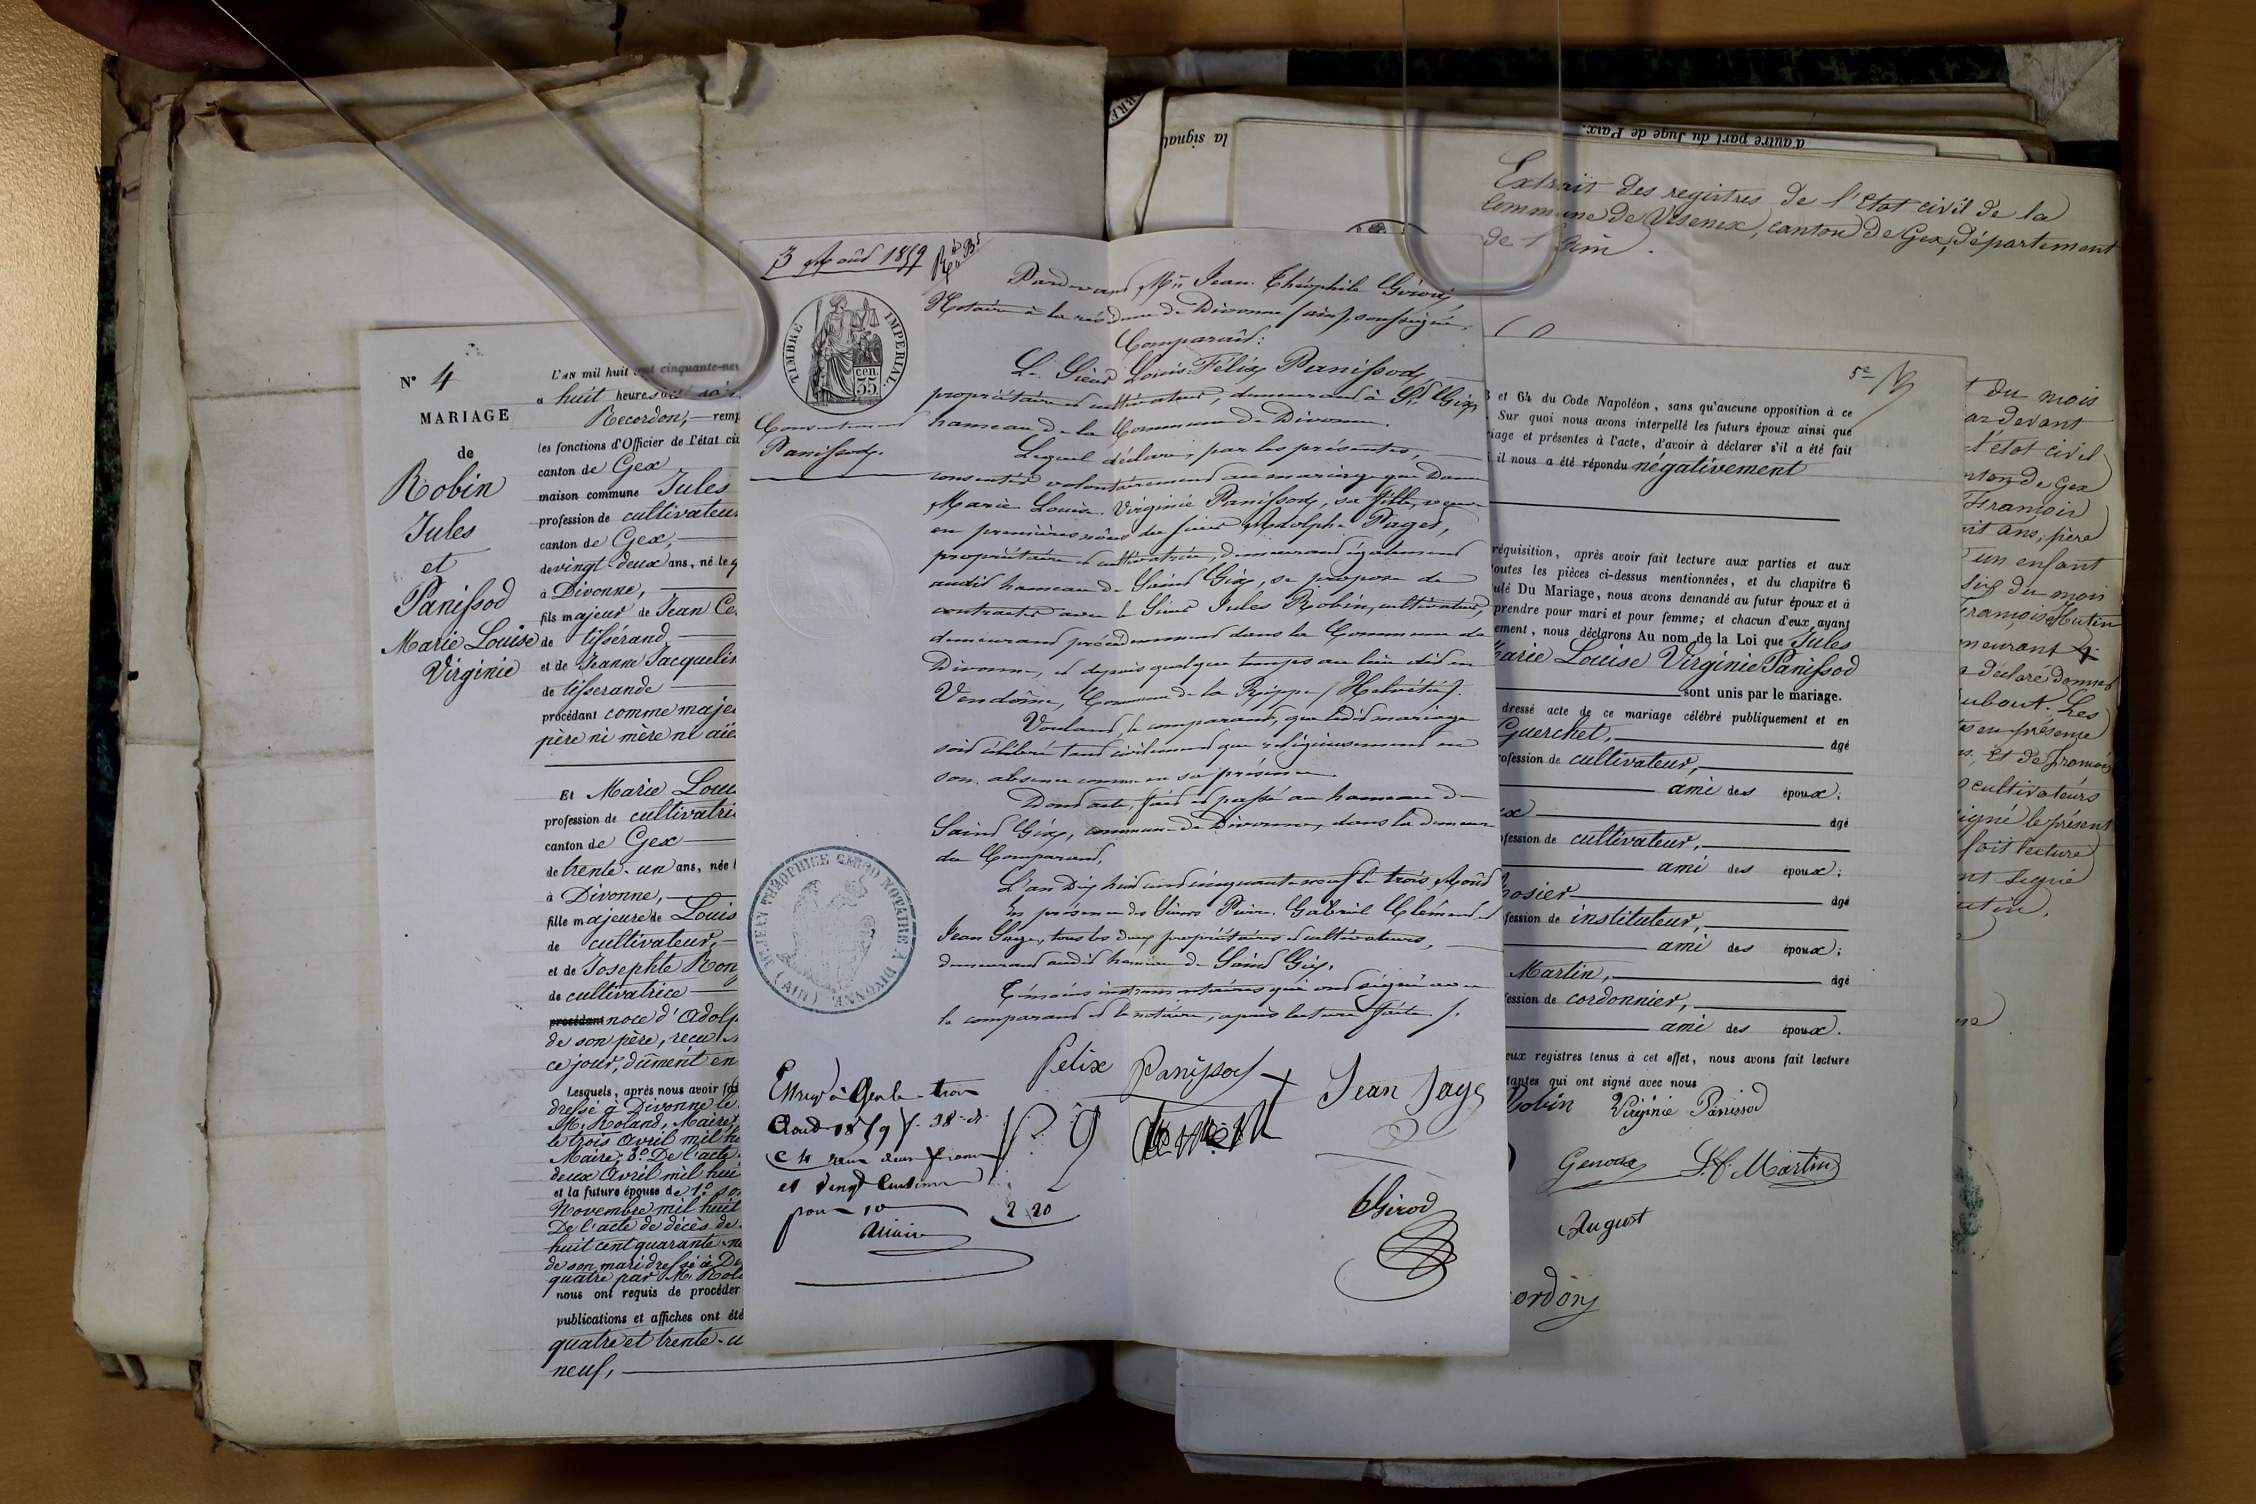 Nº 4
MARIAGE
de
Robin
Jules
et
Panissod
Marie Louise
Virginie
L'AN mil huit cent cinquante-neu
à huit heures du
Recordon, — remp
les fonctions d'Officier de l'état ci
canton de Gex
maison commune Jules
profession de cultivateur
canton de Gex,
de vingt-deux ans, né le
à Divonne,
fils majeur de Jean
de tisserand
et de Jeanne Jacqueli
de tisserande
procédant comme maje
père ni mère ni aïe
Et Marie Loui
profession de cultivatri
canton de Gex
de trente-un ans, née
à Divonne,
fille majeure de Louis
de cultivateur,
et de Josephte
de cultivatrice
procédant noce d'Adolp
de son père, reçu
ce jour, dûment en
Lesquels, après nous avoir
dressé à Divonne le
M. Roland, Maire,
le trois Avril mil hu
Maire; 3º De l'acte
deux Avril mil hui
et la future épouse de 1º
Novembre mil huit
De l'acte de décès de
huit cent quarante-n
de son mari dressé à Di
quatre par M. Rol
nous ont requis de procéder
publications et affiches ont été
quatre et trente-u
neuf,
3 Août 1859
TIMBRE IMPERIAL.
cen.
35
Consentement
Panissod.
Pardevant Me Jean Théophile Girod,
Notaire à la résidence de Divonne (ain), soussigné,
Comparaît:
Le Sieur Louis Félix Panissod,
propriétaire et cultivateur, demeurant à St Gix,
hameau de la Commune de Divonne.
Lequel déclare, par les présentes,
consentir volontairement au mariage que Dame
Marie Louise Virginie Panissod, sa fille, veuve
en premières nôces du sieur Adolphe Paget,
propriétaire et cultivatrice, demeurant également
audit hameau de Saint Gix, se propose de
contracter avec le Sieur Jules Robin, cultivateur,
demeurant précédemment dans la Commune de
Divonne, et depuis quelque temps au lieu dit en
Vendôme, Commune de la Rippe (Helvétie).
Voulant, le comparant, que ledit mariage
soit célébré tant civilement que religieusement en
son absence comme en sa présence.
Dont acte, fait et passé au hameau de
Saint Gix, commune de Divonne, dans la demeure
du Comparant,
L'an Dix huit cent cinquante-neuf le trois Août
En présence des Sieurs Pierre Gabriel Clément et
Jean Sage, tous les deux propriétaires et cultivateurs,
demeurant audit hameau de Saint Gix,
Témoins instrumentaires qui ont signé avec
le comparant et le notaire, après lecture faite.
Me JEAN THEOPHILE GIROD NOTAIRE A DIVONNE, (AIN)
Félix Panissod
Jean Sage
Clément
TGirod
trois
Août 1859 fº 38
reçu deux francs
et vingt Centimes
pour 10
2 20
la signat
d'autre part du Juge de Paix.
Extrait des registres de l'Etat civil de la
Commune de Vesenex, canton de Gex, département
de l'Ain.
5e
et 64 du Code Napoléon, sans qu'aucune opposition à ce
Sur quoi nous avons interpellé les futurs époux ainsi que
riage et présentes à l'acte, d'avoir à déclarer s'il a été fait
il nous a été répondu négativement
réquisition, après avoir fait lecture aux parties et aux
toutes les pièces ci-dessus mentionnées, et du chapitre 6
ulé Du Mariage, nous avons demandé au futur époux et à
prendre pour mari et pour femme; et chacun d'eux ayant
ement, nous déclarons Au nom de la Loi que Jules
Marie Louise Virginie Panissod
sont unis par le mariage.
dressé acte de ce mariage célébré publiquement et en
Guerchet, âgé
ofession de cultivateur,
ami des époux;
âgé
fession de cultivateur,
ami des époux;
osier âgé
fession de instituteur,
ami des époux;
Martin, âgé
fession de cordonnier,
ami des époux.
eux registres tenus à cet effet, nous avons fait lecture
tantes qui ont signé avec nous
Robin Virginie Panissod
Genoux L. F. Martin
August
cordon
du mois
ardevant
l'état civil
nton de Gex
François
it ans, père
un enfant
six du mois
françois Hutin
meurant
a déclaré donner
Les
en présence
et de françois
cultivateurs
signé le présent
fait lecture
nt signé
utin.